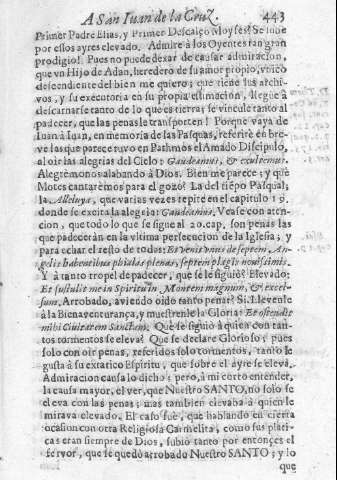 A San Iuan de la Cruz. 443
Primer Padre Elias, y Primer Descalço Moyses? Se sube
por essos ayres elevado. Admire à los Oyentes tan gran
prodigio! Pues no puede dexar de causar admiracion,
que vn Hijo de Adan, heredero de su amor propio, vnico
descendiente del bien me quiero; que tiene sus archi-
vos, y su executoria en su propia estimacion, llegue à
descarnarse tanto de lo que es tierra; se vincule tanto al
padecer, que las penas le transporten! Porque vaya de
Iuan à Iuan, en memoria de las Pasquas, referirè en bre-
ve las que parece tuvo en Pathmos el Amado Discipulo,
al oir las alegrias del Cielo: Gaudeamus, & exultemus.
Alegremonos alabando à Dios. Bien me parece; y què
Motes cantarèmos para el gozo? La del tiẽpo Pasqual;
la Alleluya, que varias vezes repite en el capitulo 19.
donde se excita la alegria: Gaudeamus. Vease con aten-
cion, que todo lo que se sigue al 20. cap. son penas las
que padecerán en la vltima persecucion de la Iglesia; y
para echar el resto de todas: Et venit vnus de septem An-
gelis habentibus phialas plenas, septem plagis novissimis.
Y à tanto tropel de padecer, què se le siguiò? Elevado:
Et sustulit me in Spiritu in Montem magnum, & excel-
sum. Arrobado, aviendo oido tanto penar? Si. Llevenle
à la Bienaventurança, y muestrenle la Gloria: Et ostendit
mihi Civitatem Sanctam. Què se siguiò à quien con tan-
tos tormentos se eleva? Que se declare Glorioso; pues
solo con oir penas, referidos solo tormentos, tanto le
gusta à su extatico Espiritu, que sobre el ayre se eleva.
Admiracion causa lo dicho; pero, à mi corto entender,
la causa mayor, el ver, que Nuestro SANTO, no solo se
eleva con las penas; mas tambien elevaba à quien le
mirava elevado. El caso fuè, que hablando en cierta
ocasion con otra Religiosa Carmelita, como sus plati-
cas eran siempre de Dios, subiò tanto por entonces el
fervor, que se quedò arrobado Nuestro SANTO; y lo
que